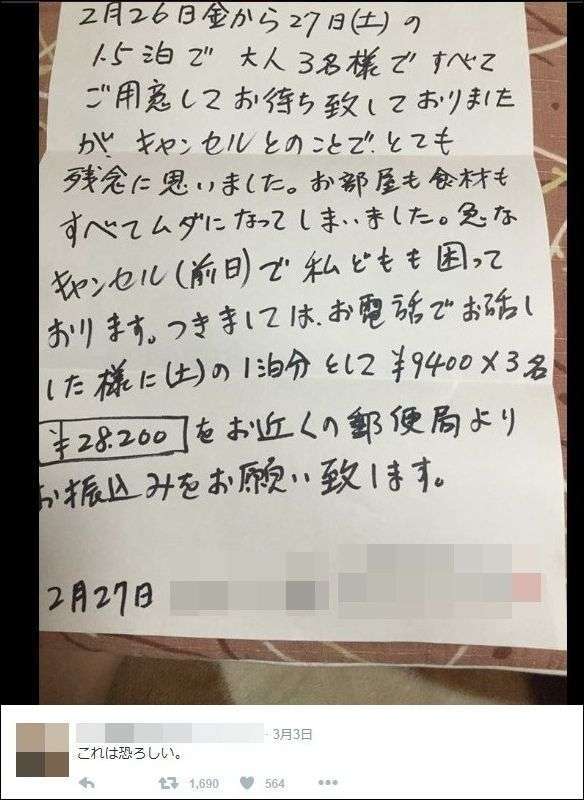 2月26日金から27日(土)の
1.5泊で 大人3名様ですべて
ご用意してお待ち致しておりました
が、キャンセルとのことで、とても
残念に思いました。お部屋も食材も
すべてムダになってしまいました。急な
キャンセル(前日)で私どもも困って
おります。つきましては、お電話でお話し
した様に(土)の1泊分として¥9400×3名
¥28.200 をお近くの郵便局より
お振込みをお願い致します。
2月27日
· 3月3日
これは恐ろしい。
1,690 564